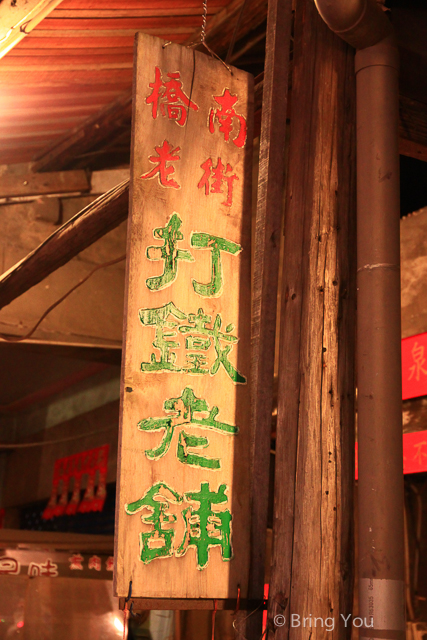 橋南
老街
打鐵老舖
泉
味
© Bring You